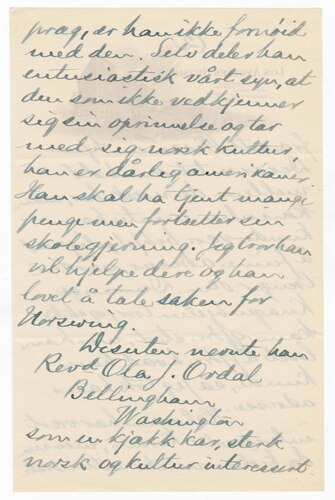 præg, er han ikke fornöid
med den. Selv deler han
entusiastisk vårt syn, at
den som ikke vedkjenner
seg sin oprinnelse og tar
med sig norsk kultur,
han er dårlig amerikaner
Han skal ha tjent mange
penge men fortsetter sin
skolegjerning. Jeg tror han
vil hjelpe dere og han
lovet å tale saken for
Norsewing.
Desuten nevnte han
Revd Ola J. Ordal
Bellingham
Washington
som en kjakk kar, sterk
norsk og kultur interessert.